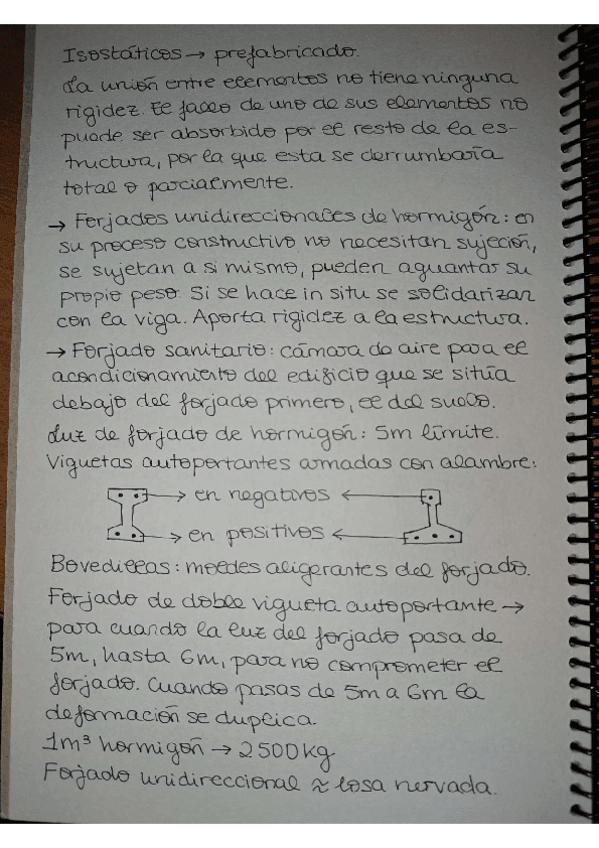 Isostáticos → prefabricado.
La unión entre elementos no tiene ninguna
rigidez. El fallo de uno de sus elementos no
puede ser absorbido por el resto de la es-
tructura, por la que esta se derrumbaría
total o parcialmente.
→ Forjados unidireccionales de hormigón: en
su proceso constructivo no necesitan sujeción,
se sujetan a si mismo, pueden aguantar su
propio peso. Si se hace in situ se solidarizan
con la viga. Aporta rigidez a la estructura.
→ Forjado sanitario: cámara de aire para el
acondicionamiento del edificio que se sitúa
debajo del forjado primero, el del suelo.
Luz de forjado de hormigón: 5m límite.
Viguetas autoportantes armadas con alambre:
→ en negativos ←
→ en positivos ←
Bovedillas: moldes aligerantes del forjado.
Forjado de doble vigueta autoportante →
para cuando la luz del forjado pasa de
5m, hasta 6m, para no comprometer el
forjado. Cuando pasas de 5m a 6m la
deformación se duplica.
1m³ hormigón → 2500kg
Forjado unidireccional ≈ losa nervada.